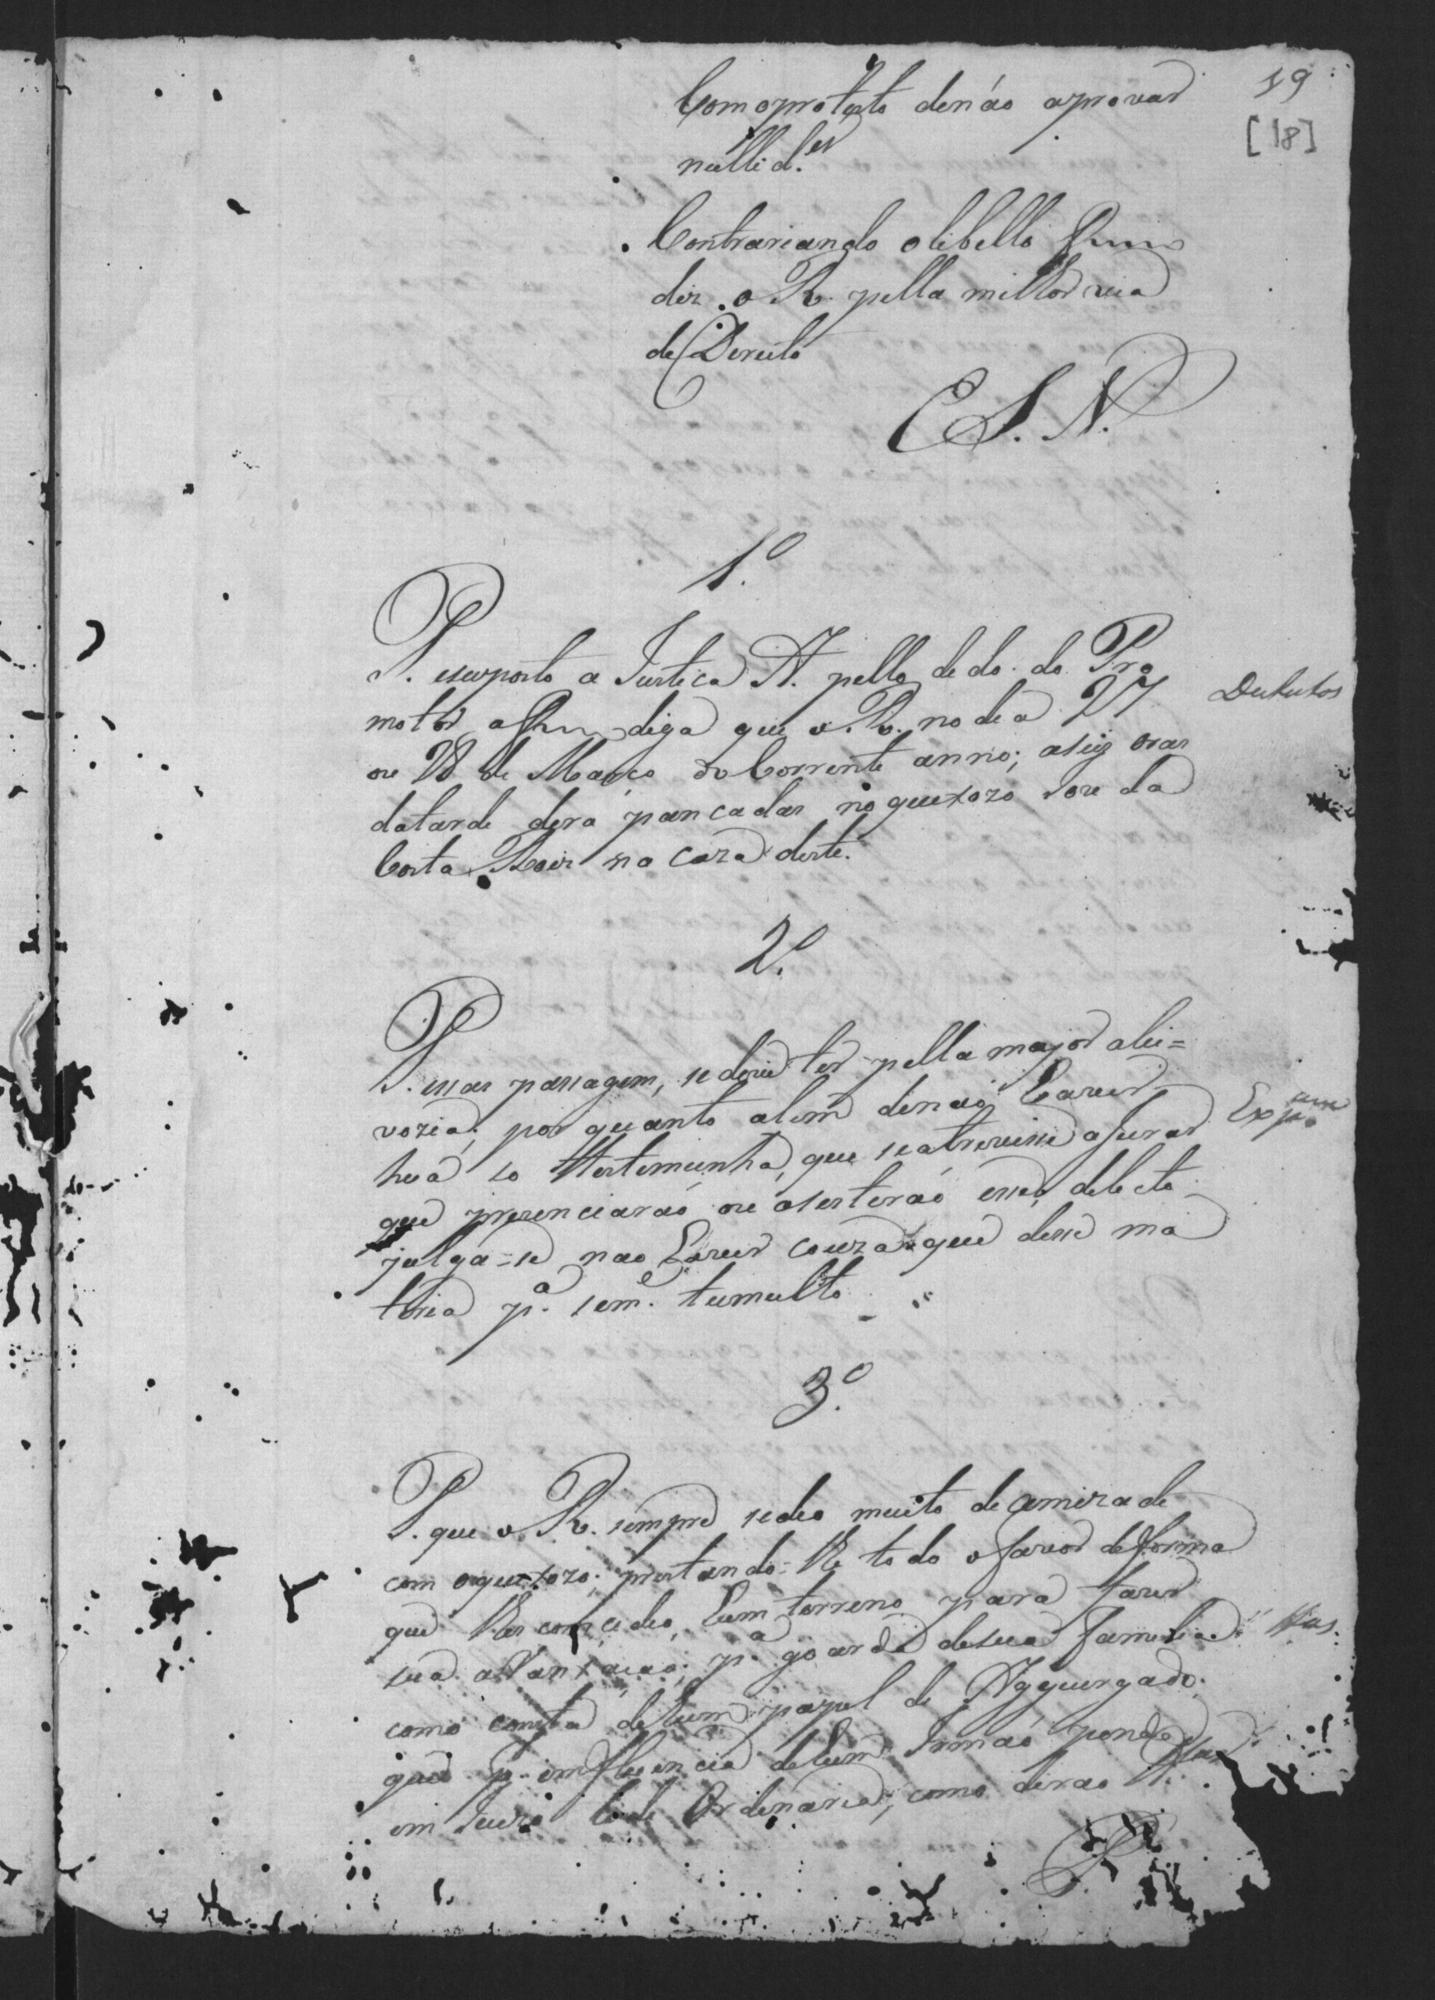 19
[18]
Com o protesto de não aprovar
nullid.es
Contrariando o libello Crime
diz o R. pella milhor via
de Direito
E. S. N.
1.º
P. exesposto a Justiça A. pello dedo do Pro
motor a Crime diga que o R. no dia 27
ou 28 de Março do Corrente anno; a seis oras
da tarde dera pancadas no queixozo Joze da
Costa Reis na caza deste.
Dedutos
2.º
P. essas passagem, se deve ter pella major alei=
vozia; por quanto alem de não haver
huã só testemunha, que se atrevesse a jurar
que prezenciarão ou asesterão esse delecto
julga-se não haver couza que desse ma
teria p.a sem.e tumulto
3.º
P. que o R. sempre se deo muito de amizade
com o queixozo; prestando-lhe todo o favor de forma
que lhes concedeo, hum terreno para fazer
sua plantação; p.a goarda de sua familia
como consta de hum papel de
que p. emfluencia de hum Irmão pende
em Juizo Ordenaria; como dirão
P.